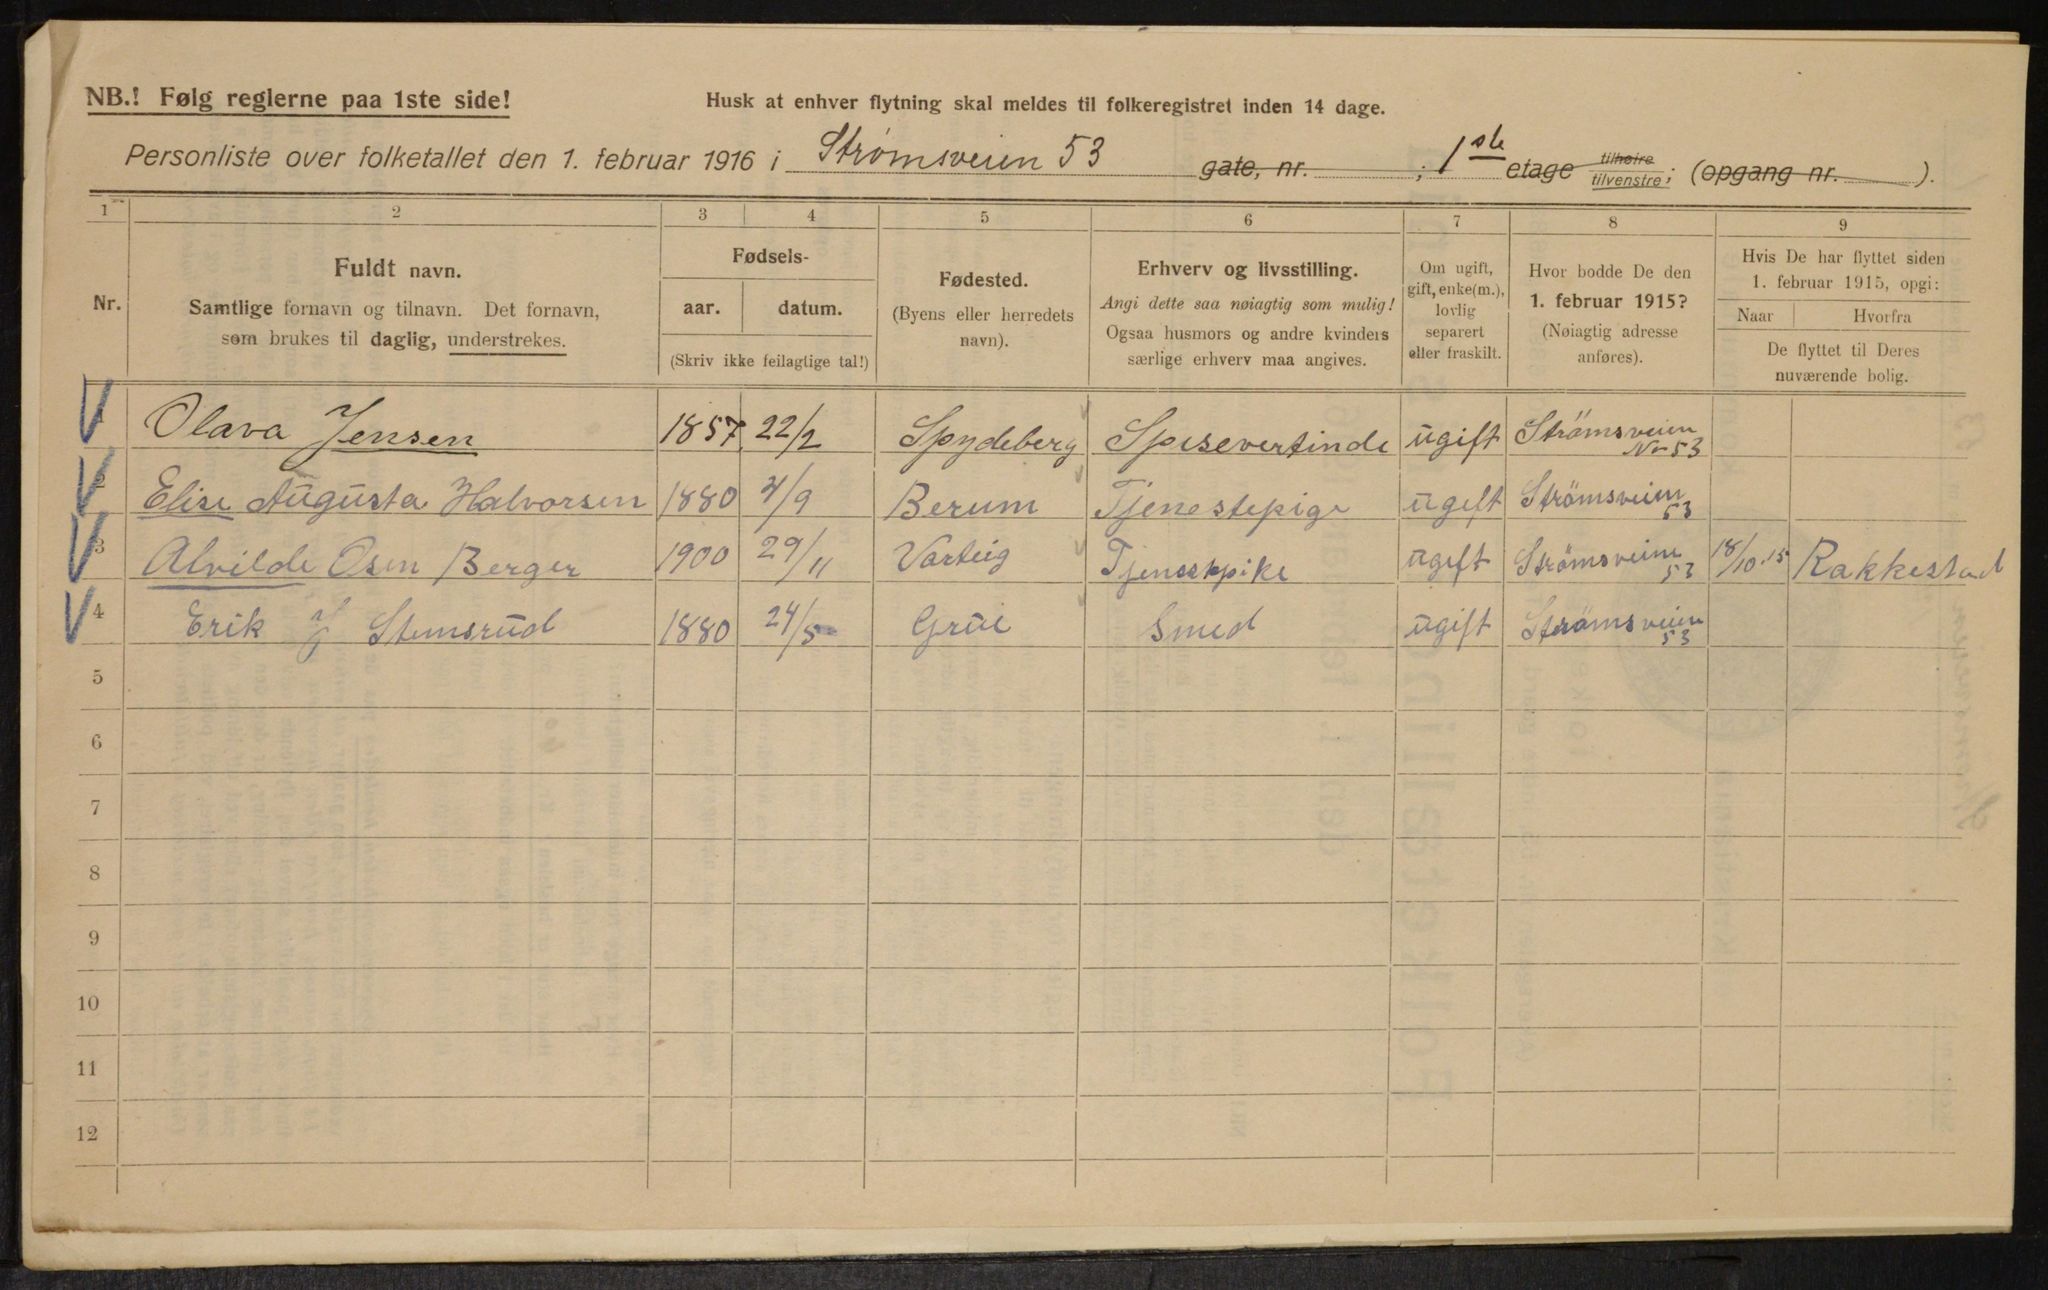 NB.! Følg reglerne paa 1ste side!
Husk at enhver flytning skal meldes til folkeregistret inden 14 dage.
Personliste over folketallet den 1. februar 1916 i Strømsveien 53 gate, nr. ; 1ste etage tilhøire tilvenstre; (opgang nr. ).
1 2 3 4 5 6 7 8 9
Nr.
Fuldt navn.
Samtlige fornavn og tilnavn. Det fornavn,
som brukes til daglig, understrekes.
Fødsels-
aar. datum.
(Skriv ikke feilagtige tal!)
Fødested.
(Byens eller herredets
navn).
Erhverv og livsstilling.
Angi dette saa nøiagtig som mulig!
Ogsaa husmors og andre kvinders
særlige erhverv maa angives.
Om ugift,
gift, enke(m.),
lovlig
separert
eller fraskilt.
Hvor bodde De den
1. februar 1915?
(Nøiagtig adresse
anføres).
Hvis De har flyttet siden
1. februar 1915, opgi:
Naar Hvorfra
De flyttet til Deres
nuværende bolig.
Olava Jensen 1857 22/2 Spydeberg Spisevertinde ugift Strömsveien No 53
2 Elise Augusta Halvorsen 1880 4/9 Berum Tjenestepige ugift Strömsveien 53
3 Alvilde Osen Berger 1900 29/11 Varteig Tjenestpike ugift Strömsveien 53 18/10.15 Rakkestad
4 Erik J Stemsrud 1880 24/5 Grue Smed ugift Strömsveien 53
5
6
7
8
9
10
11
12